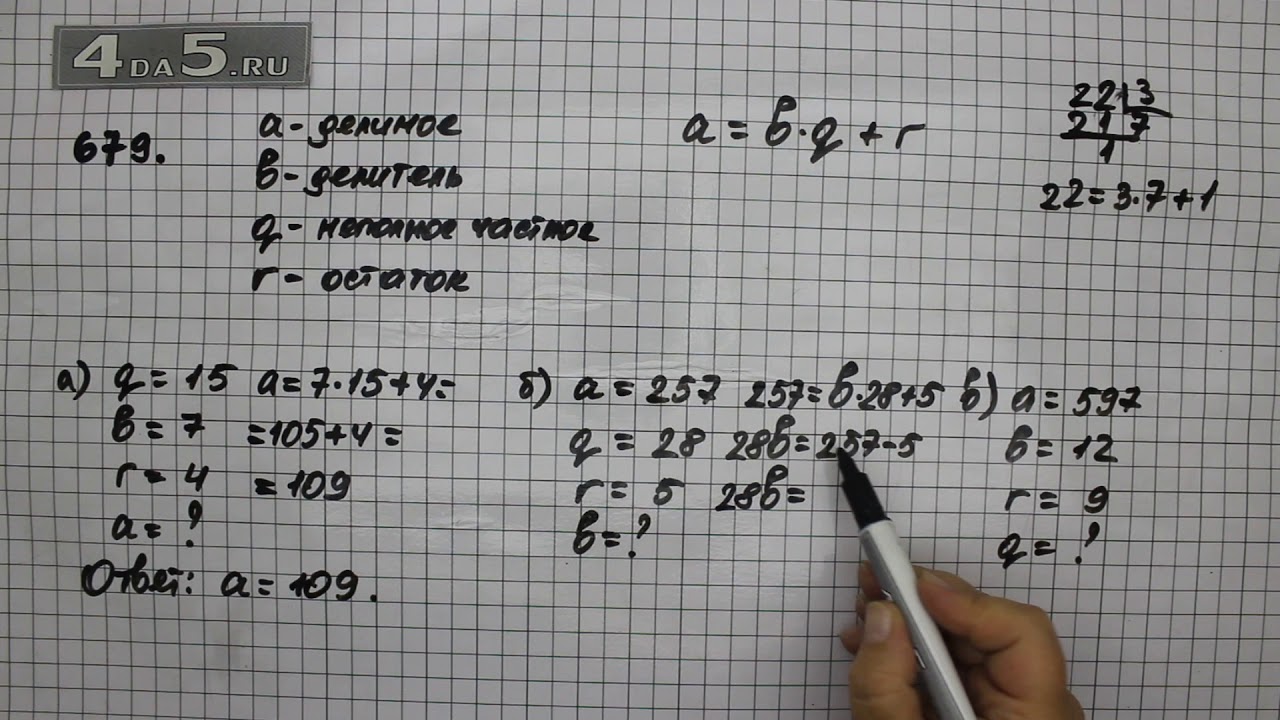 4DA5.RU
679.
a - делимое
в - делитель
q - неполное частное
r - остаток
a = в·q + r
22 3
21 7
1
22 = 3·7 + 1
а) q = 15 a = 7·15+4=
в = 7 =105+4=
r = 4 =109
a = ?
Ответ: a = 109.
б) a = 257 257=в·28+5
q = 28 28в=257-5
r = 5 28в=
в = ?
в) a = 597
в = 12
r = 9
q = ?